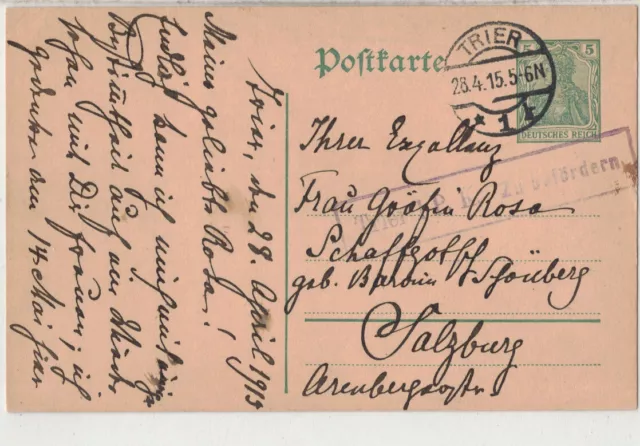 Postkarte
TRIER
28.4.15.5-6N
* 1 k
5 5
DEUTSCHES REICH
Trier zu befördern
Ihrer Exzellenz
Frau Gräfin Rosa
Schaffgotsch
geb. Baronin Schönberg
Salzburg
Arenbergstr.
Trier, den 28. April 1915
Meine geliebte Rosa!
Endlich kann ich einmal mit
Bestimmtheit auf ein Wieder-
sehen mit Dir freuen; ich
gedenke den 14. Mai hier